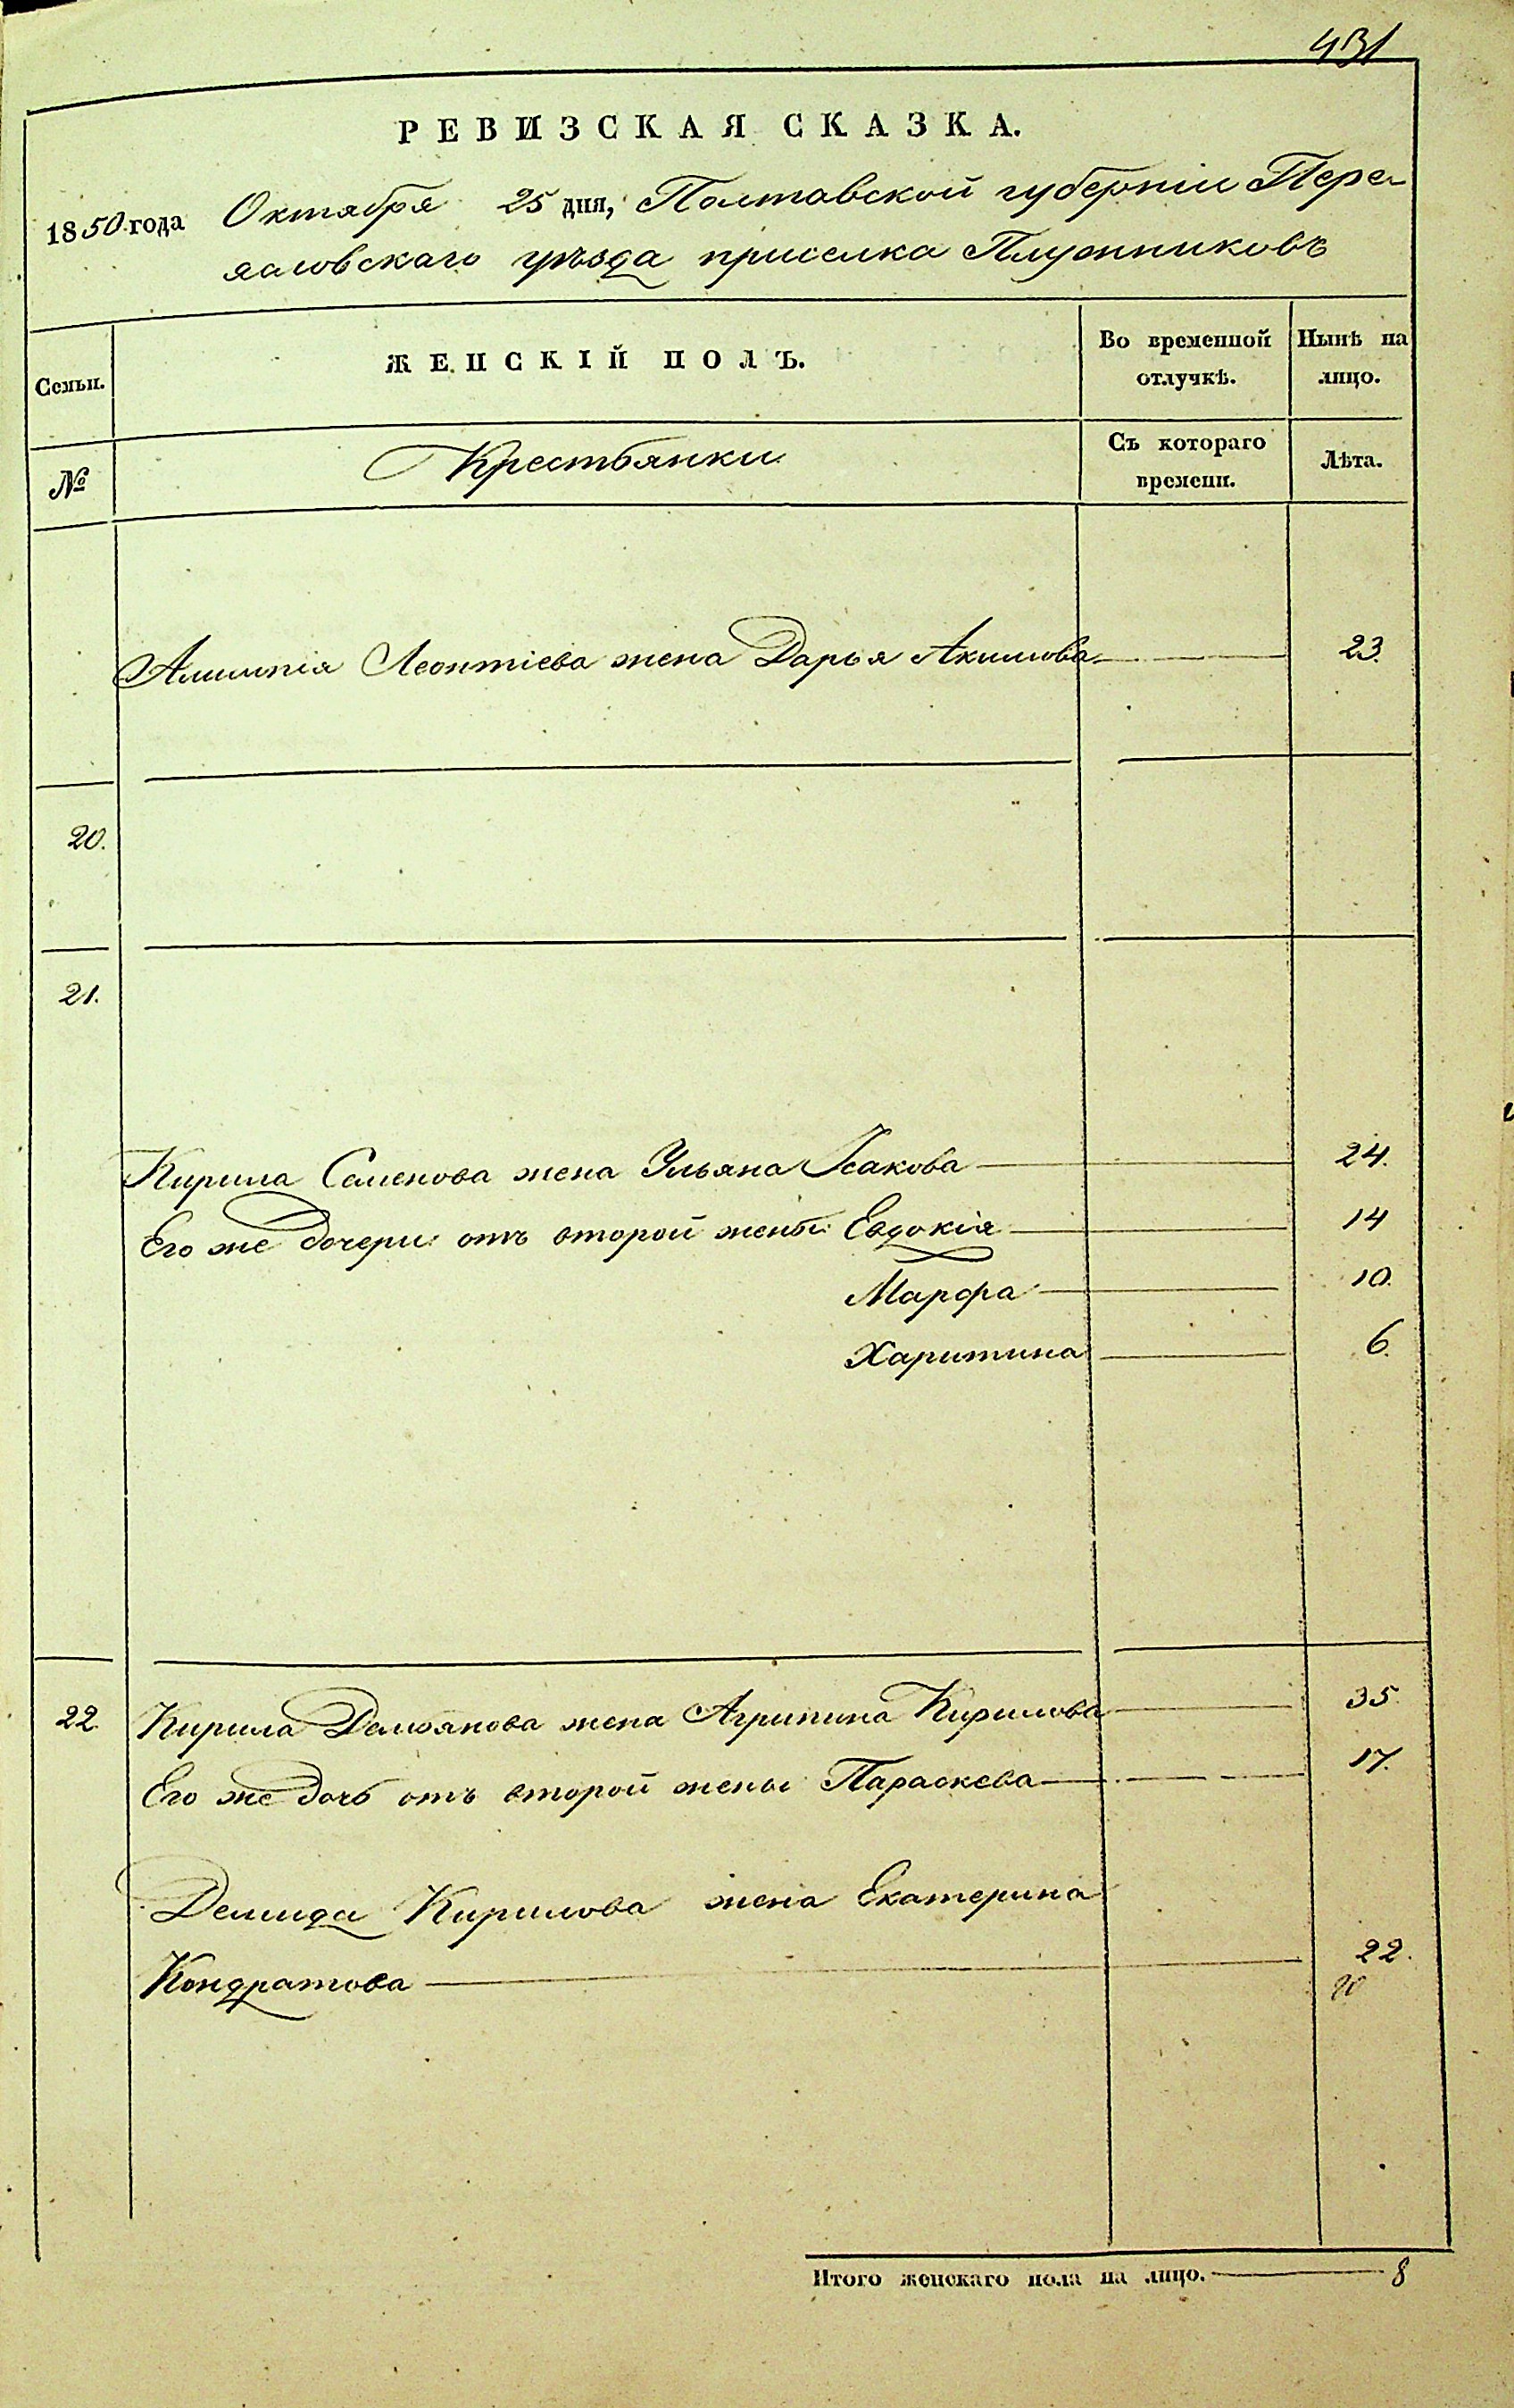 431
РЕВИЗСКАЯ СКАЗКА.
1850 года Октября 25 дня, Полтавской губерніи Пере-
яаловскаго уѣзда приселка Плужниковъ
Семьи.
ЖЕНСКІЙ ПОЛЪ.
Во временной отлучкѣ.
Нынѣ на лицо.
№
Крестьянки
Съ котораго времени.
Лѣта.
Алимпія Леонтіева жена Дарья Акимова 23.
20.
21.
Кирила Семенова жена Ульяна Исакова 24.
Его же дочери отъ второй жены Евдокія 14
Марфа 10.
Харитина 6.
22. Кирила Демьянова жена Агрипина Кирилова 35.
Его же дочь отъ второй жены Параскева 17.
Демида Кирилова жена Екатерина
Кондратова 22.
Итого женскаго пола на лицо. 8